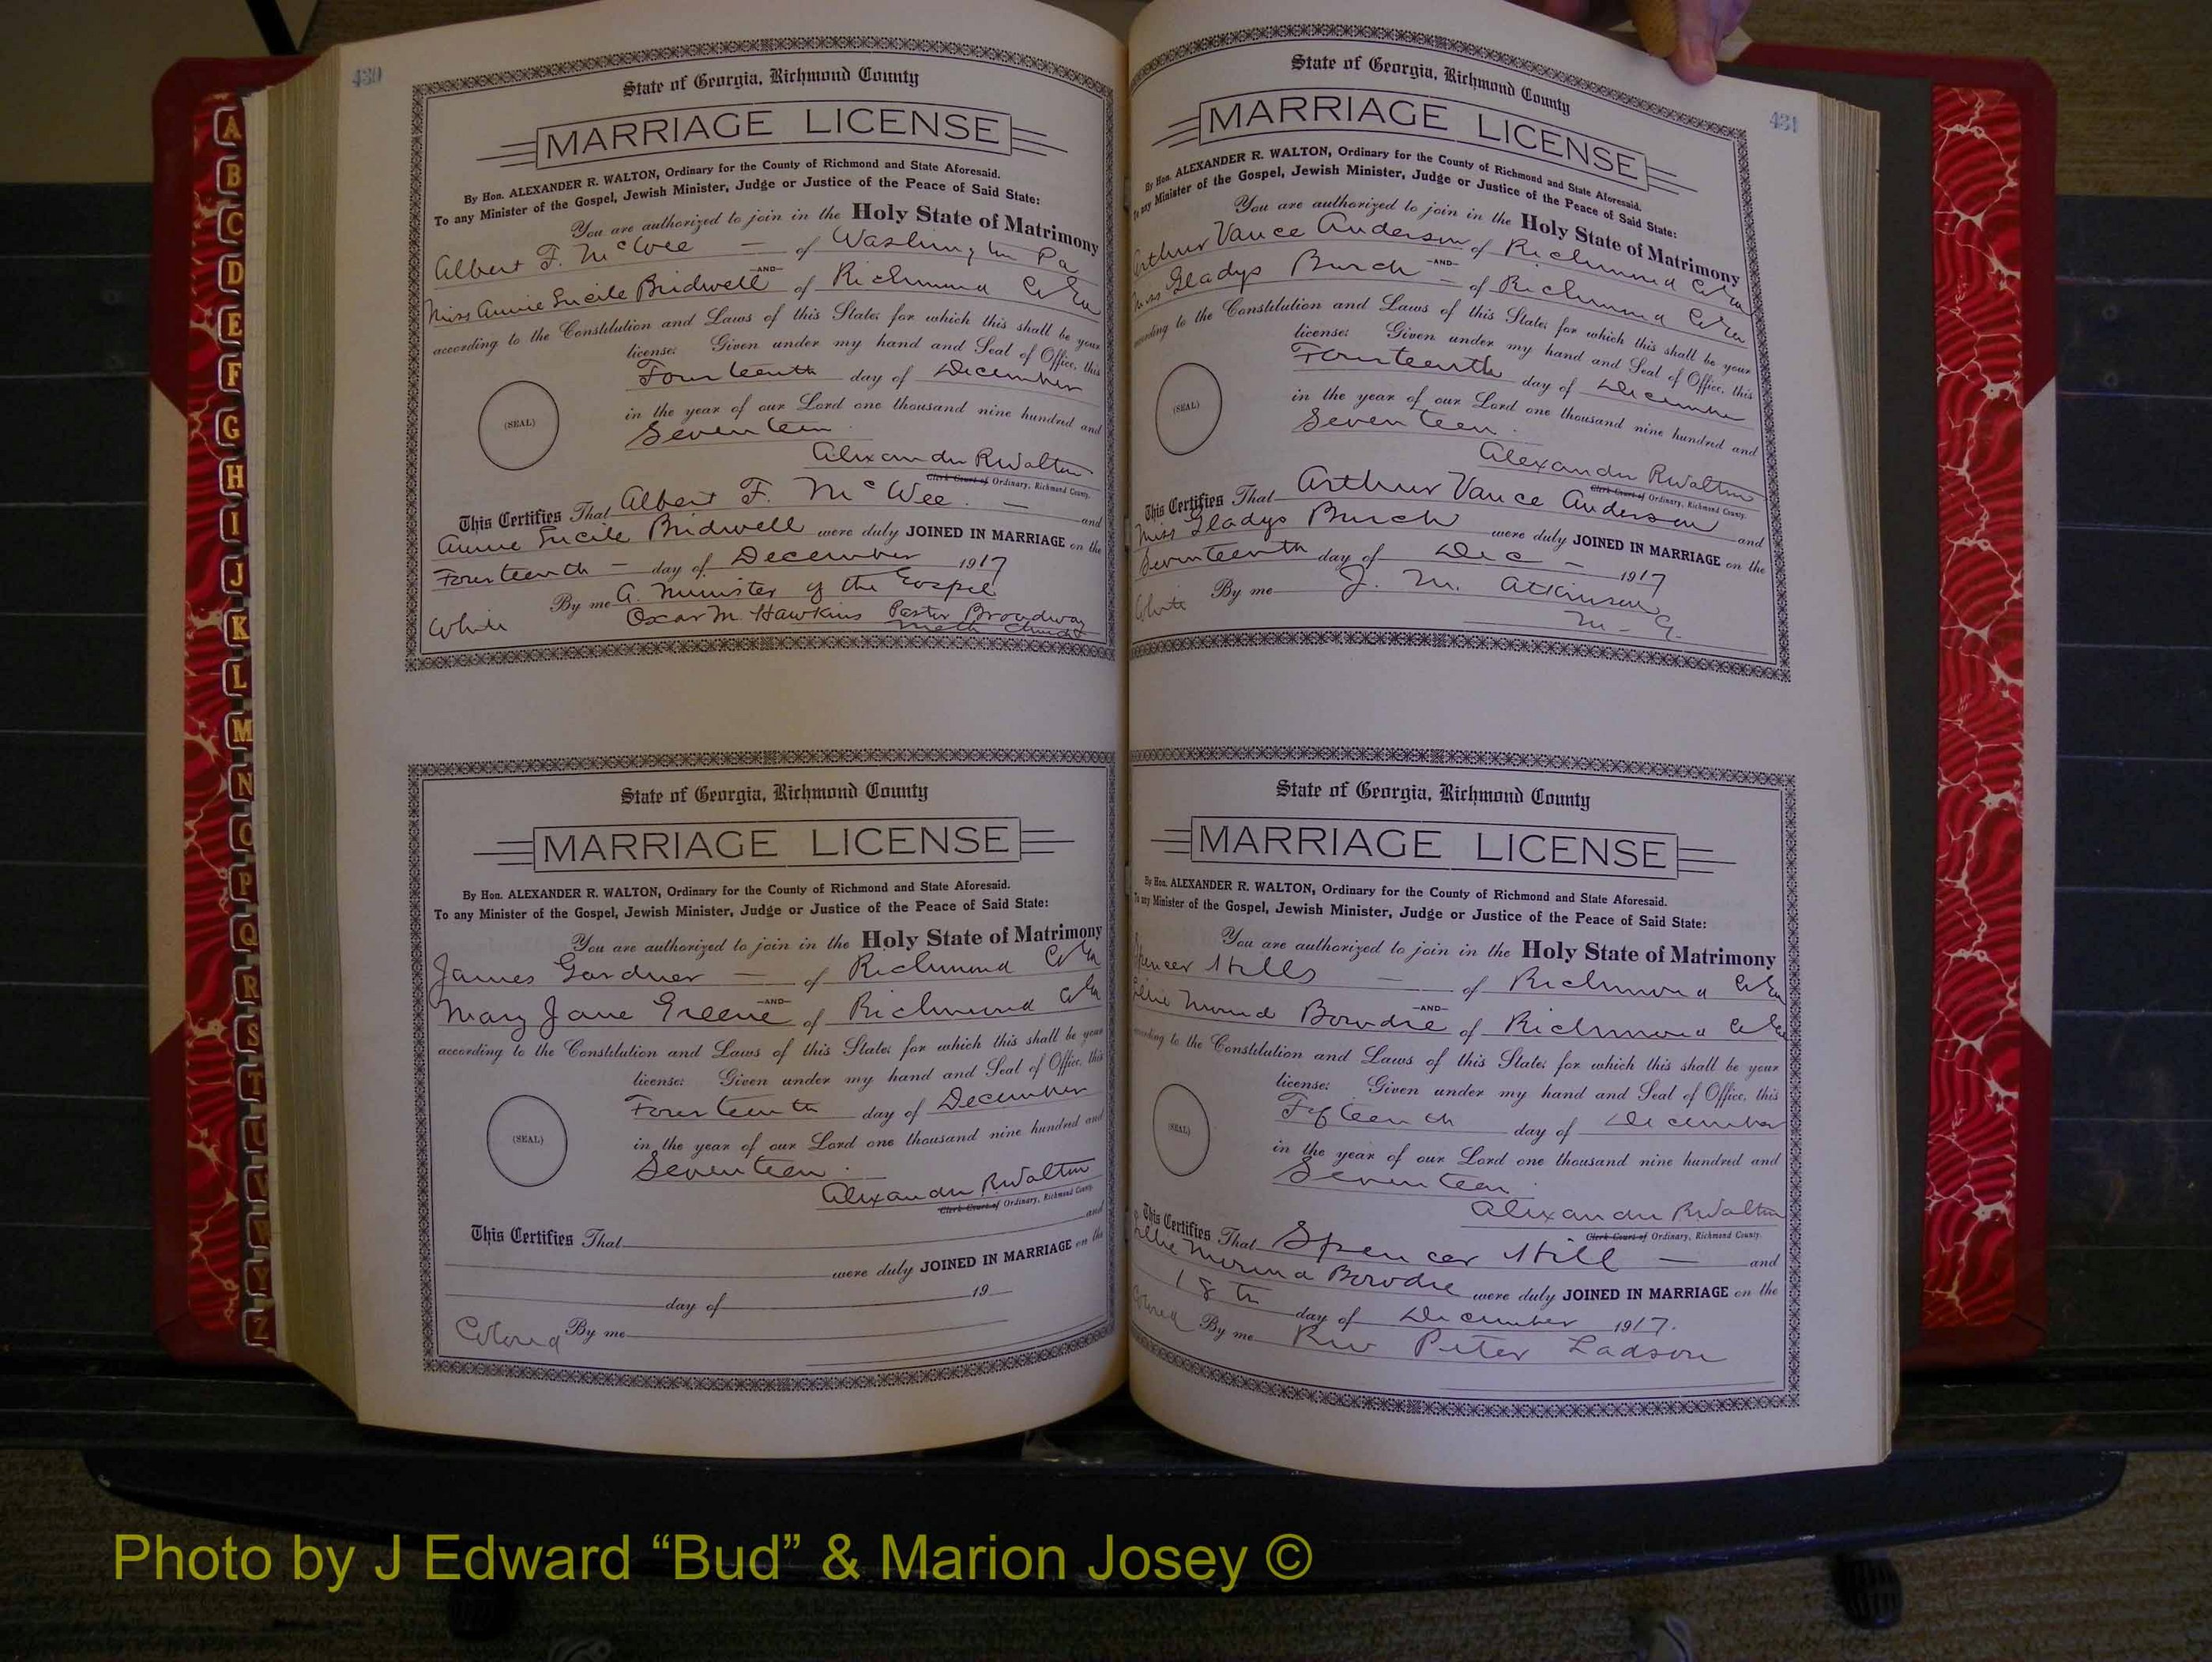 A
B
C
D
E
F
G
H
I
J
K
L
M
N
O
P
Q
R
S
T
U
V
W
Y
Z
430
State of Georgia, Richmond County
MARRIAGE LICENSE
By Hon. ALEXANDER R. WALTON, Ordinary for the County of Richmond and State Aforesaid.
To any Minister of the Gospel, Jewish Minister, Judge or Justice of the Peace of Said State:
You are authorized to join in the Holy State of Matrimony
Albert F. McWee — of Washington Pa
—AND—
Miss Annie Lucile Bridwell of Richmond Co Ga
according to the Constitution and Laws of this State; for which this shall be your
license: Given under my hand and Seal of Office, this
Fourteenth day of December
(SEAL)
in the year of our Lord one thousand nine hundred and
Seventeen.
Alexander R Walton
Clerk Court of Ordinary, Richmond County.
This Certifies That Albert F. McWee. — and
Annie Lucile Bridwell were duly JOINED IN MARRIAGE on the
Fourteenth — day of December 1917
By me A. Minister of the Gospel
White Oscar M. Hawkins Pastor Broadway
Meth Church
State of Georgia, Richmond County
MARRIAGE LICENSE
By Hon. ALEXANDER R. WALTON, Ordinary for the County of Richmond and State Aforesaid.
To any Minister of the Gospel, Jewish Minister, Judge or Justice of the Peace of Said State:
You are authorized to join in the Holy State of Matrimony
James Gardner — of Richmond Co Ga
—AND—
Mary Jane Greene of Richmond Co Ga
according to the Constitution and Laws of this State; for which this shall be your
license: Given under my hand and Seal of Office, this
Fourteenth day of December
(SEAL)
in the year of our Lord one thousand nine hundred and
Seventeen.
Alexander R Walton
Clerk Court of Ordinary, Richmond County.
This Certifies That and
were duly JOINED IN MARRIAGE on the
day of 19
Colored By me
431
State of Georgia, Richmond County
MARRIAGE LICENSE
By Hon. ALEXANDER R. WALTON, Ordinary for the County of Richmond and State Aforesaid.
To any Minister of the Gospel, Jewish Minister, Judge or Justice of the Peace of Said State:
You are authorized to join in the Holy State of Matrimony
Arthur Vance Anderson of Richmond Co Ga
—AND—
Miss Gladys Burch — of Richmond Co Ga
according to the Constitution and Laws of this State; for which this shall be your
license: Given under my hand and Seal of Office, this
Fourteenth day of December
(SEAL)
in the year of our Lord one thousand nine hundred and
Seventeen.
Alexander R Walton
Clerk Court of Ordinary, Richmond County.
This Certifies That Arthur Vance Anderson and
Miss Gladys Burch were duly JOINED IN MARRIAGE on the
Seventeenth day of Dec — 1917
White By me J. M. Atkinson
M-G.
State of Georgia, Richmond County
MARRIAGE LICENSE
By Hon. ALEXANDER R. WALTON, Ordinary for the County of Richmond and State Aforesaid.
To any Minister of the Gospel, Jewish Minister, Judge or Justice of the Peace of Said State:
You are authorized to join in the Holy State of Matrimony
Spencer Hills — of Richmond Co Ga
—AND—
Bowdre of Richmond Co Ga
according to the Constitution and Laws of this State; for which this shall be your
license: Given under my hand and Seal of Office, this
Fifteenth day of December
(SEAL)
in the year of our Lord one thousand nine hundred and
Seventeen.
Alexander R Walton
Clerk Court of Ordinary, Richmond County.
This Certifies That Spencer Hill — and
Bowdre were duly JOINED IN MARRIAGE on the
18th day of December 1917.
Colored By me Rev Peter Ladson
Photo by J Edward “Bud” & Marion Josey ©